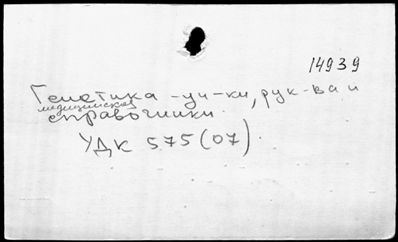 14939
Генетика -уч-ки, рук-ва и
медицинская
справочники.
УДК 575(07)